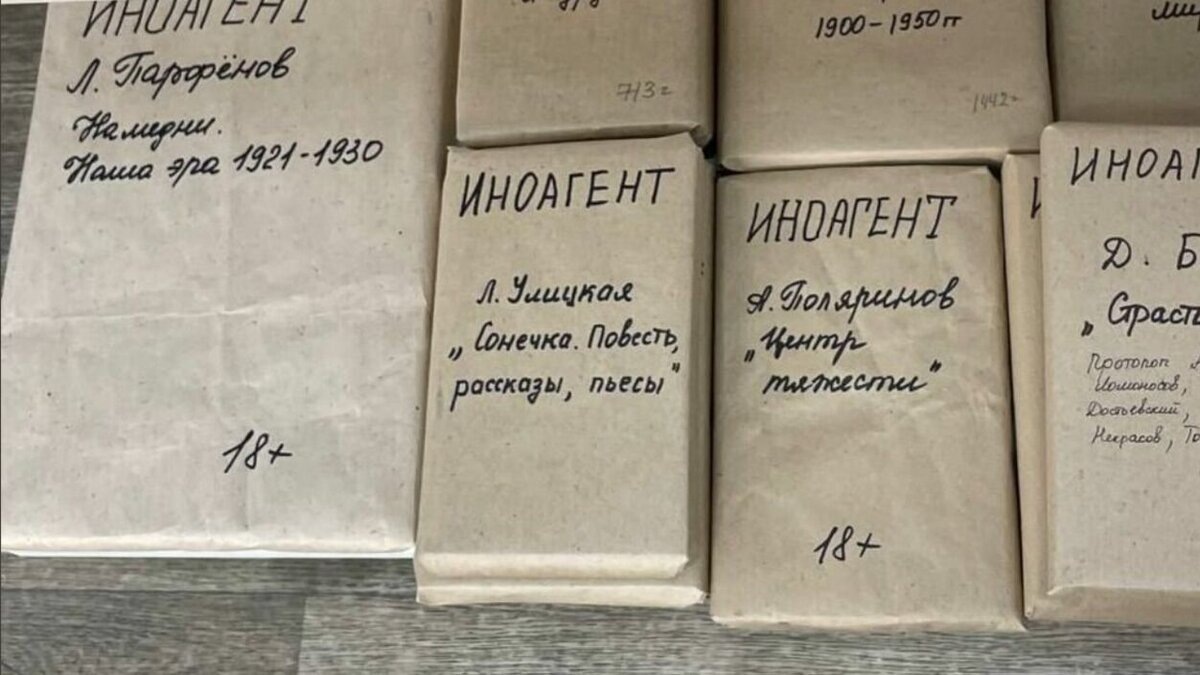 ИНОАГЕНТ
Л. Парфёнов
Намедни.
Наша эра 1921-1930
18+
713 г
1900-1950 гг
1442 г
ИНОАГЕНТ
Л. Улицкая
„Сонечка. Повесть,
рассказы, пьесы"
ИНОАГЕНТ
А. Поляринов
„Центр
тяжести"
18+
ИНОАГ
Д. Б
„Страсть
Протопоп А
Ломоносов,
Достоевский,
Некрасов, То